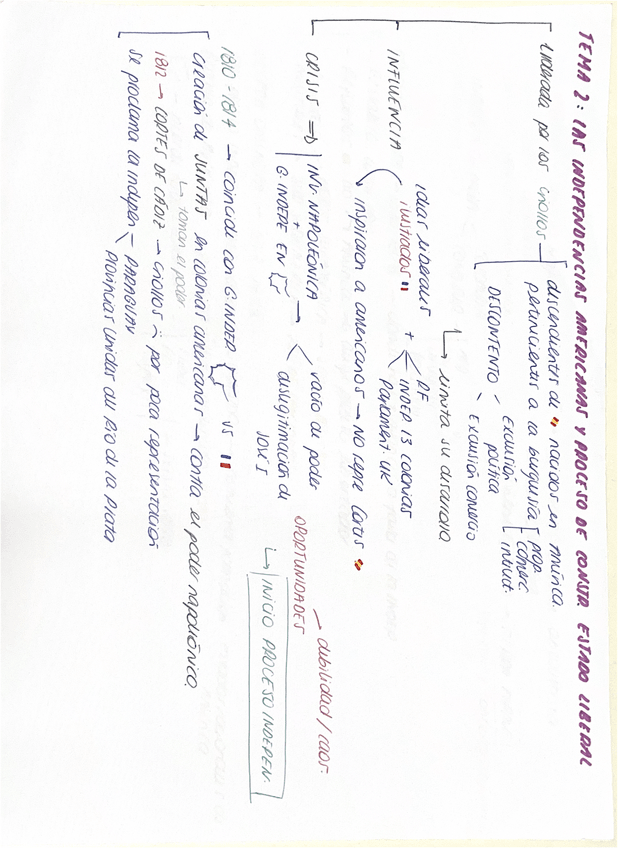 TEMA 2: LAS INDEPENDENCIAS AMERICANAS Y PROCESO DE CONSTR. ESTADO LIBERAL
liderada por los criollos
descendientes de nacidos en América
pertenecientes a la burguesía
prop.
comerc.
intelect.
DESCONTENTO
exclusión política
exclusión comercio
↳ limita su desarrollo
INFLUENCIA
ideas liberales + RF
ilustrados
INDEP 13 colonias
Parlament. UK
inspiración a americanos → No repre Cortes
CRISIS ⇒
INV. NAPOLEÓNICA →
+
G. INDEPE EN
vacío de poder
deslegitimación de JOSÉ I
→ debilidad / caos.
OPORTUNIDADES
↳ INICIO PROCESO INDEPEN.
1810 - 1814 → coincide con G. INDEP vs
creación de JUNTAS en colonias americanas → contra el poder napoleónico
↳ toman el poder
1812 → CORTES DE CÁDIZ → criollos :( por poca representación
se proclama la indepen
PARAGUAY
Provincias Unidas del Río de la Plata